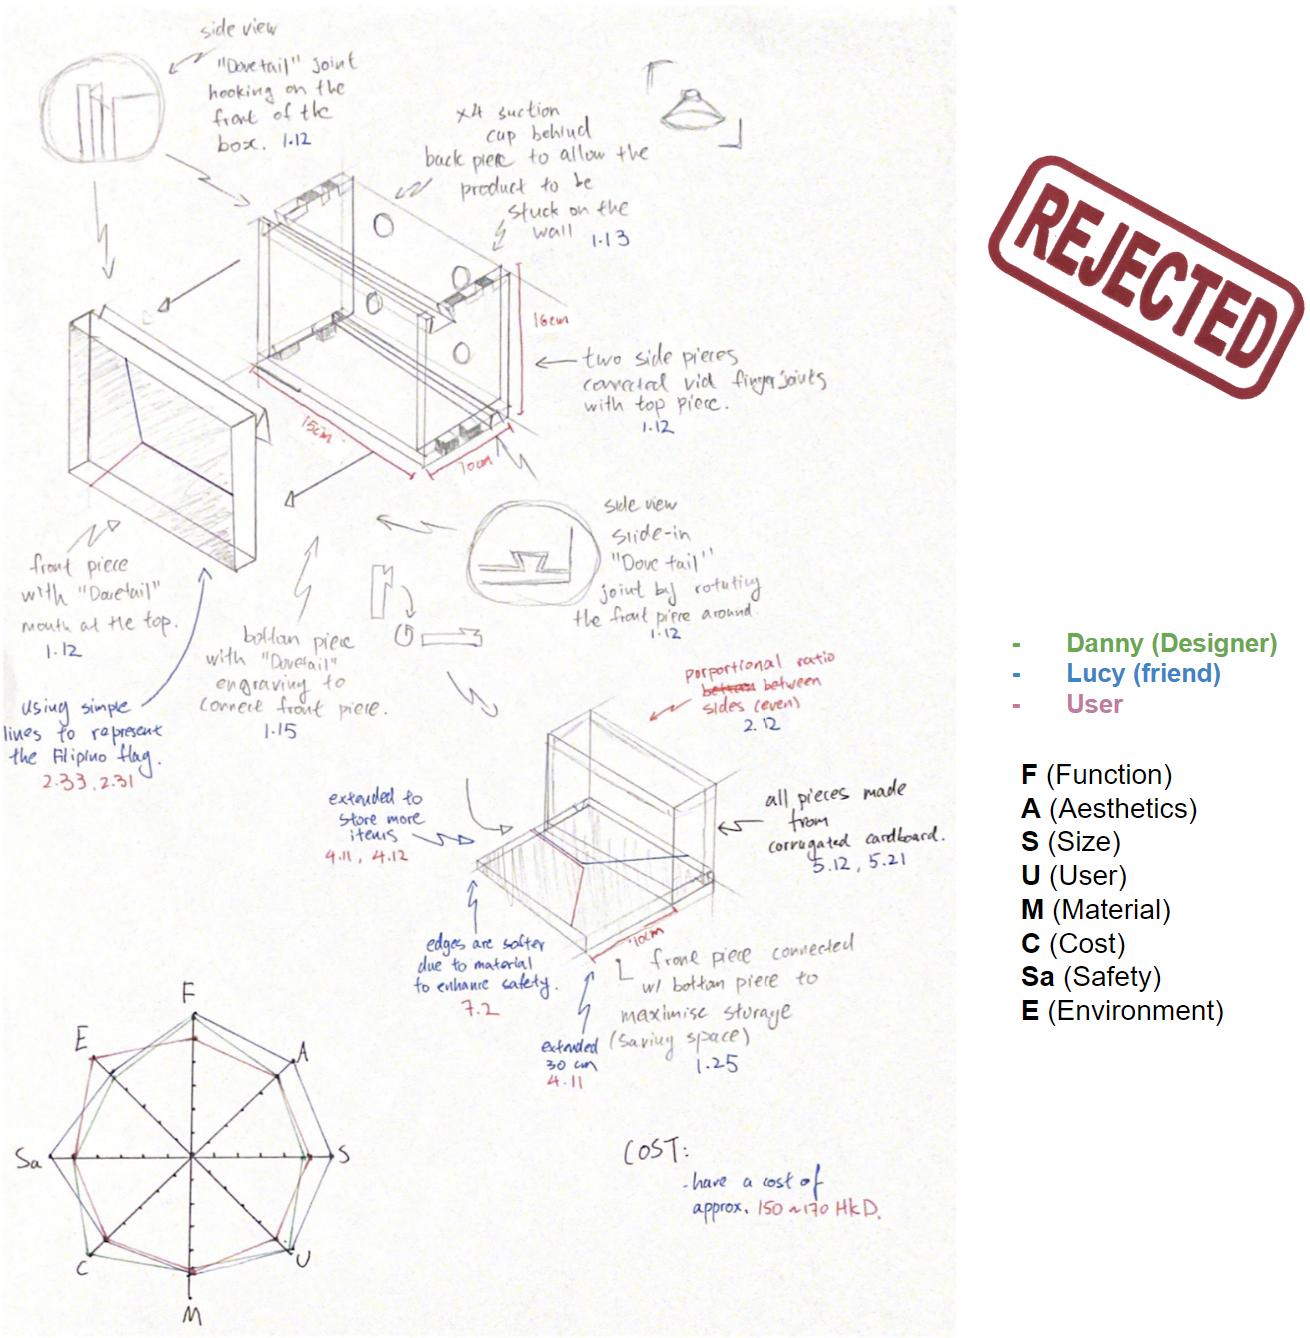 side view
"Dovetail" joint
hooking on the
front of the
box. 1.12
x4 suction
cup behind
back piece to allow the
product to be
stuck on the
wall 1.13
REJECTED
16cm
two side pieces
connected via fingerjoints
with top piece.
1.12
15cm
10cm
side view
slide-in
"Dove tail"
joint by rotating
the front piece around.
1.12
front piece
with "Dovetail"
mouth at the top.
1.12
bottom piece
with "Dovetail"
engraving to
connect front piece.
1.15
using simple
lines to represent
the Filipino flag.
2.33, 2.31
porportional ratio
between between
sides (even)
2.12
extended to
store more
items
4.11, 4.12
all pieces made
from
corrugated cardboard.
5.12, 5.21
edges are softer
due to material
to enhance safety.
7.2
10cm
front piece connected
w/ bottom piece to
maximise storage
(saving space)
1.25
extended
30 cm
4.11
COST:
- have a cost of
approx. 150~170 HKD.
F
A
S
U
M
C
Sa
E
- Danny (Designer)
- Lucy (friend)
- User
F (Function)
A (Aesthetics)
S (Size)
U (User)
M (Material)
C (Cost)
Sa (Safety)
E (Environment)